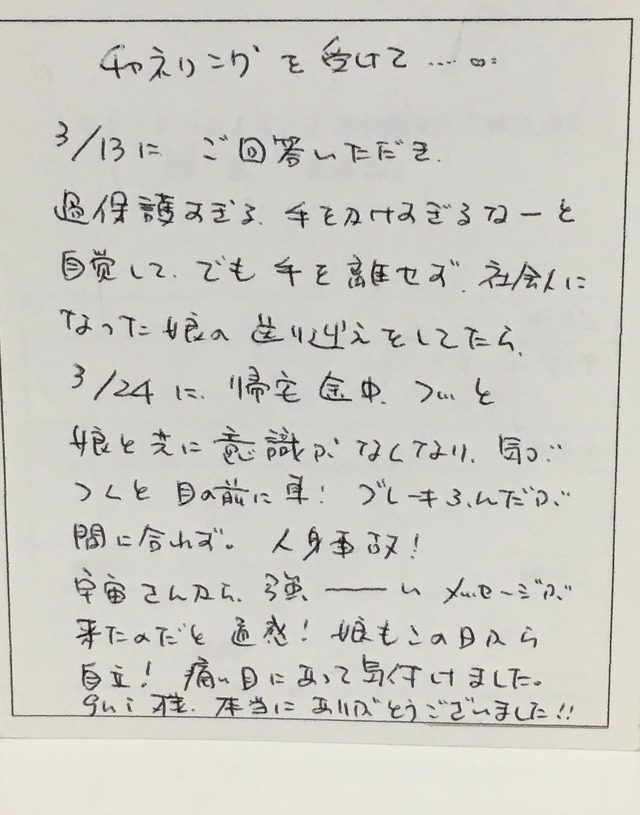 チャネリングを受けて....
3/13に ご回答いただき.
過保護すぎる、手をかけすぎるなーと
自覚して、でも手を離せず、社会人に
なった娘の送り迎えをしてたら、
3/24に、帰宅途中、つぃと
娘と共に意識がなくなり、気が
つくと目の前に車! ブレーキふんだが
間に合わず。人身事故!
宇宙さんから、強――い メッセージが
来たのだと直感! 娘もこの日から
自立! 痛い目にあって気付けました。
様、本当にありがとうございました!!